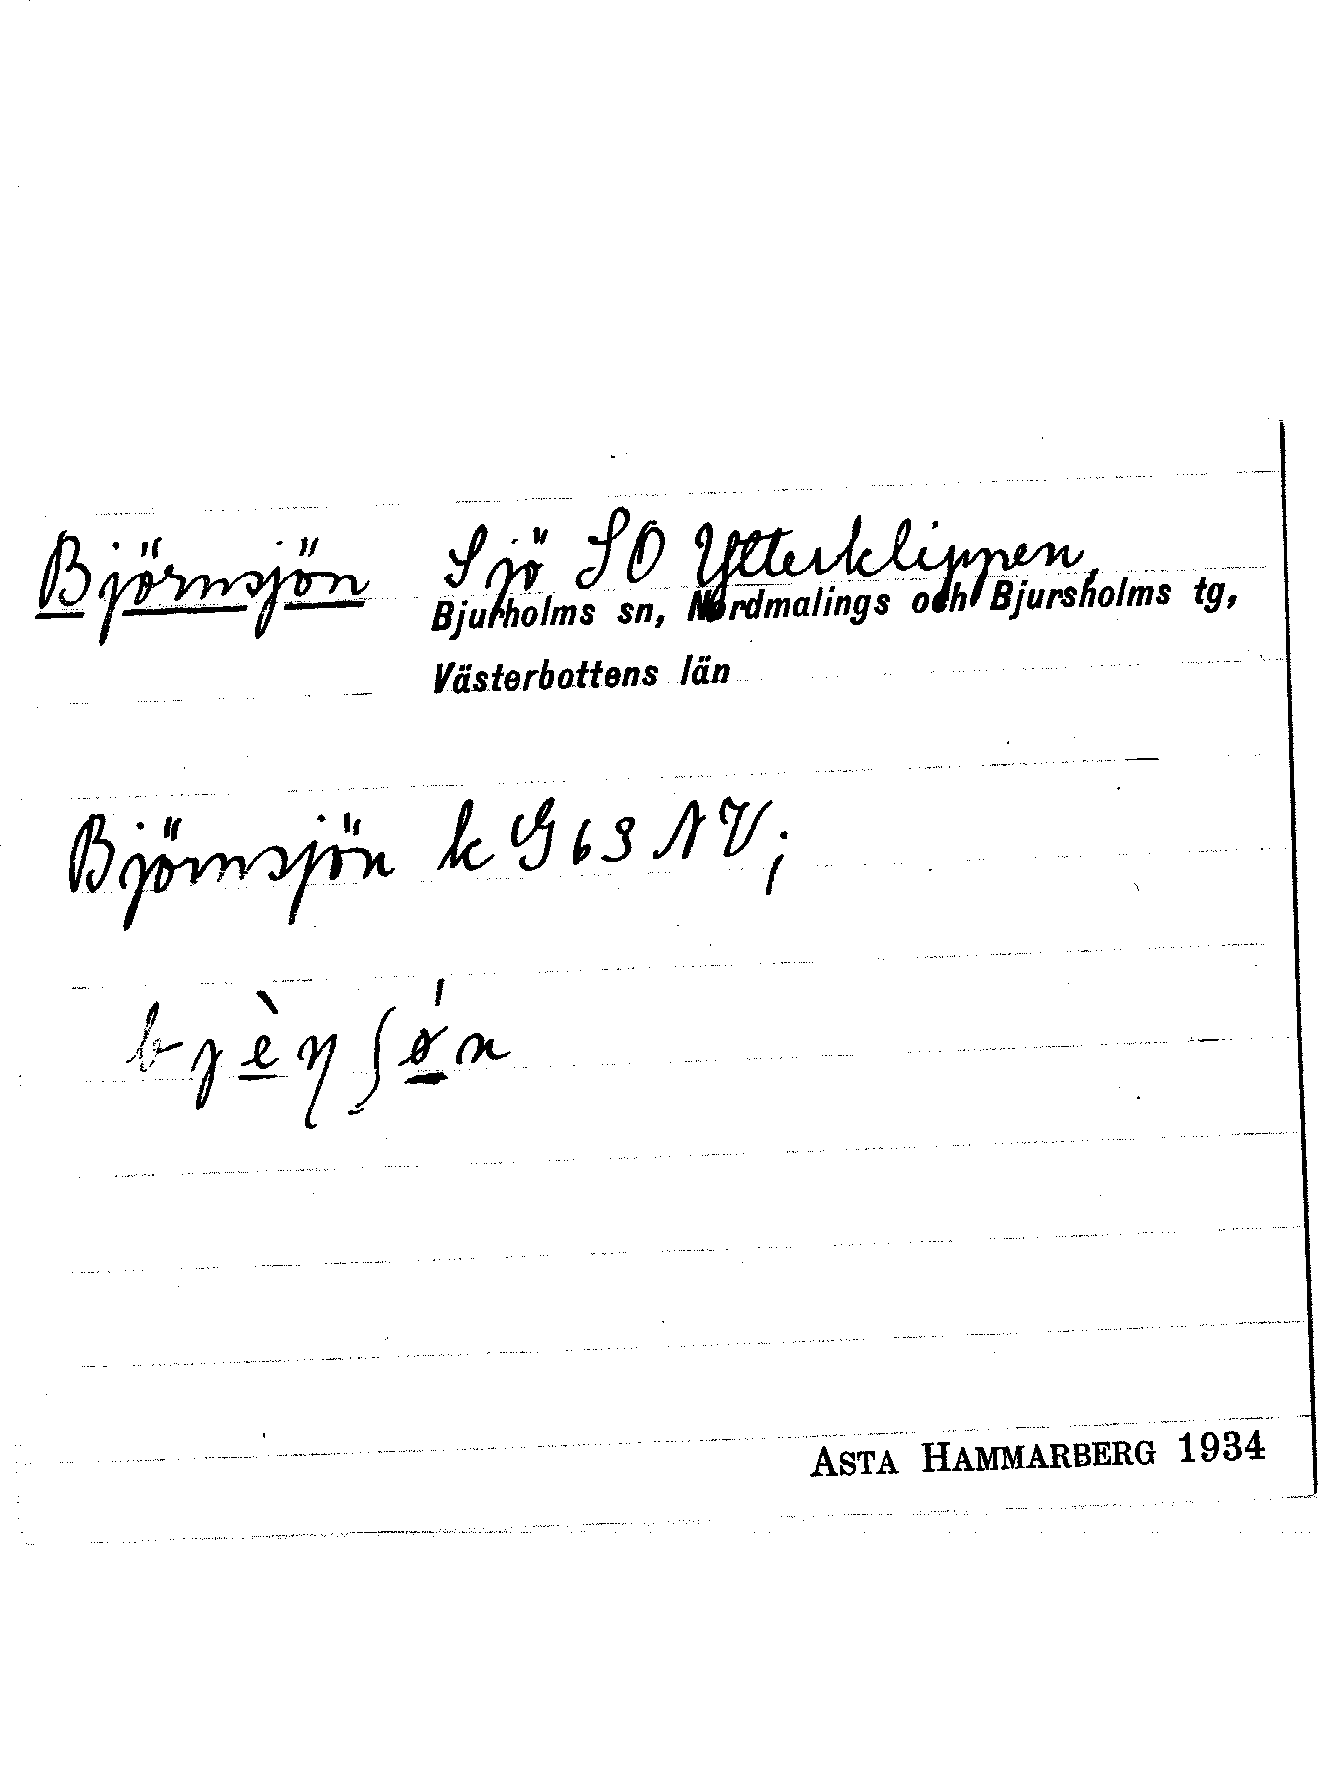 Björnsjön Sjö SO Ytterklippen,
Bjurholms sn, Nordmalings och Bjursholms tg,
Västerbottens län
Björnsjön k G 63 NV;
ASTA HAMMARBERG 1934